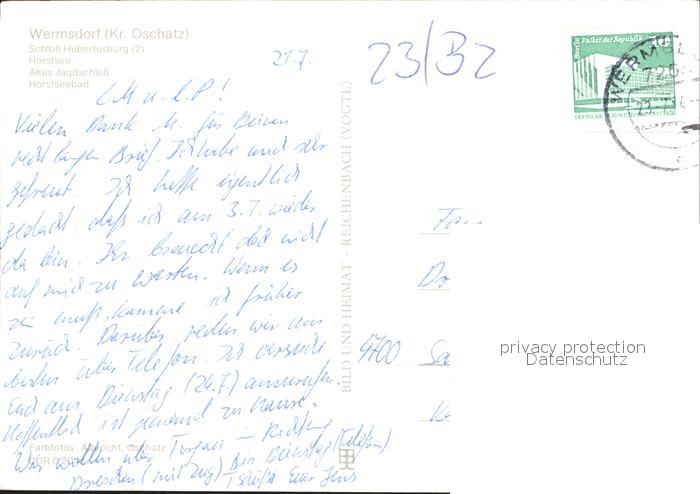 Wermsdorf (Kr. Oschatz)
Schloß Hubertusburg (2)
Horstsee
Altes Jagdschloß
Horstseebad
21.7.
23/B2
Berlin Palast der Republik 10
WERMSDORF
L.M. u. L.P.!
Vielen Dank M. für Deinen
recht langen Brief. Ich habe mich sehr
gefreut. Ich hatte eigentlich
gedacht, daß ich am 3.7. wieder
da bin. Ihr braucht doch nicht
auf mich zu warten. Wenn es
sein muß, komme ich früher
zurück. Darüber reden wir am
besten über Telefon. Ich versuche
Euch am Dienstag (24.7.) anzurufen.
Hoffentlich ist jemand zu Hause.
Wir wollen über Torgau in Richtung
Dresden (mit Zug) Bis Dienstag (Telefon)
grüßt Euer Jens
BILD UND HEIMAT · REICHENBACH (VOGTL)
Fam
4700 Sa
Farbfotos: Albrecht, Oschatz
privacy protection
Datenschutz